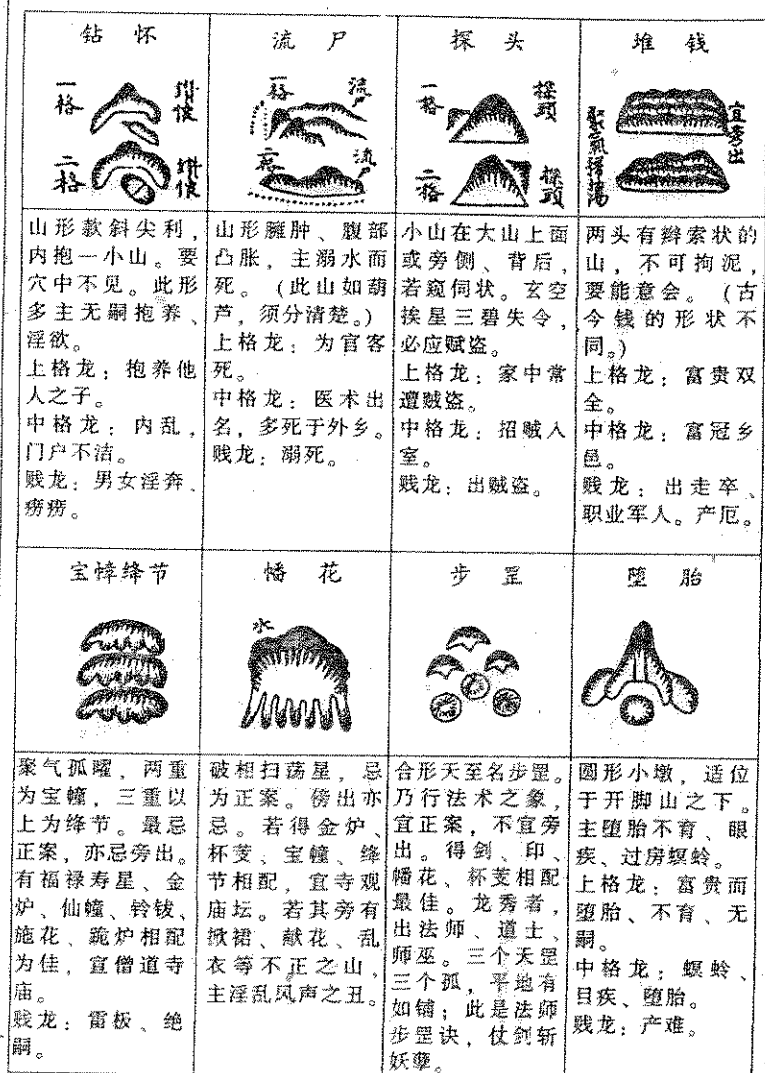 钻怀
一格
二格
流尸
一格
流尸
二格
流尸
探头
一格
探頭
二格
探頭
堆钱
宜旁出
山形欹斜尖利，
内抱一小山。要
穴中不见。此形
多主无嗣抱养、
淫欲。
上格龙：抱养他
人之子。
中格龙：内乱，
门户不洁。
贱龙：男女淫奔、
痨瘵。
山形臃肿、腹部
凸胀，主溺水而
死。（此山如葫
芦，须分清楚。）
上格龙：为官客
死。
中格龙：医术出
名，多死于外乡。
贱龙：溺死。
小山在大山上面
或旁侧、背后，
若窥伺状。玄空
挨星三碧失令，
必应贼盗。
上格龙：家中常
遭贼盗。
中格龙：招贼入
室。
贱龙：出贼盗。
两头有辫索状的
山，不可拘泥，
要能意会。（古
今钱的形状不
同。）
上格龙：富贵双
全。
中格龙：富冠乡
邑。
贱龙：出走卒、
职业军人。产厄。
宝幢绛节
幡花
水
步罡
堕胎
聚气孤曜，两重
为宝幢，三重以
上为绛节。最忌
正案，亦忌旁出。
有福禄寿星、金
炉、仙幢、铃钹、
施花、跪炉相配
为佳，宜僧道寺
庙。
贱龙：雷板、绝
嗣。
破相扫荡星，忌
为正案。傍出亦
忌。若得金炉、
杯茭、宝幢、绛
节相配，宜寺观
庙坛。若其旁有
掀裙、献花、乱
衣等不正之山，
主淫乱风声之丑。
合形天至名步罡。
乃行法术之象，
宜正案，不宜旁
出。得剑、印、
幡花、杯茭相配
最佳。龙秀者，
出法师、道士、
师巫。三个天罡
三个孤，平地有
如铺；此是法师
步罡诀，仗剑斩
妖孽。
圆形小墩，适位
于开脚山之下。
主堕胎不育、眼
疾、过房螟蛉。
上格龙：富贵而
堕胎、不育、无
嗣。
中格龙：螟蛉、
目疾、堕胎。
贱龙：产难。